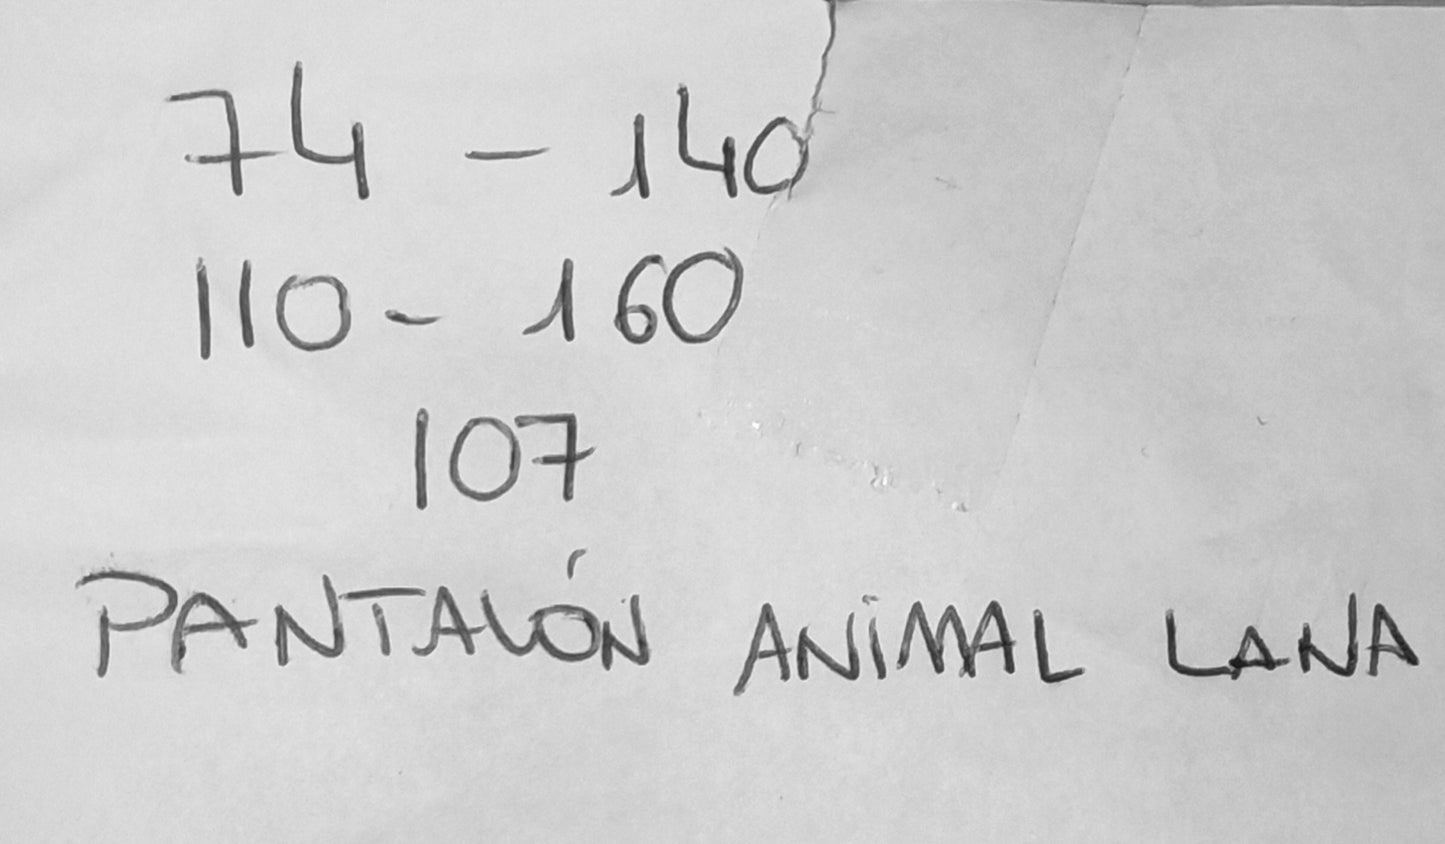 74 - 140
110 - 160
107
PANTALÓN ANIMAL LANA